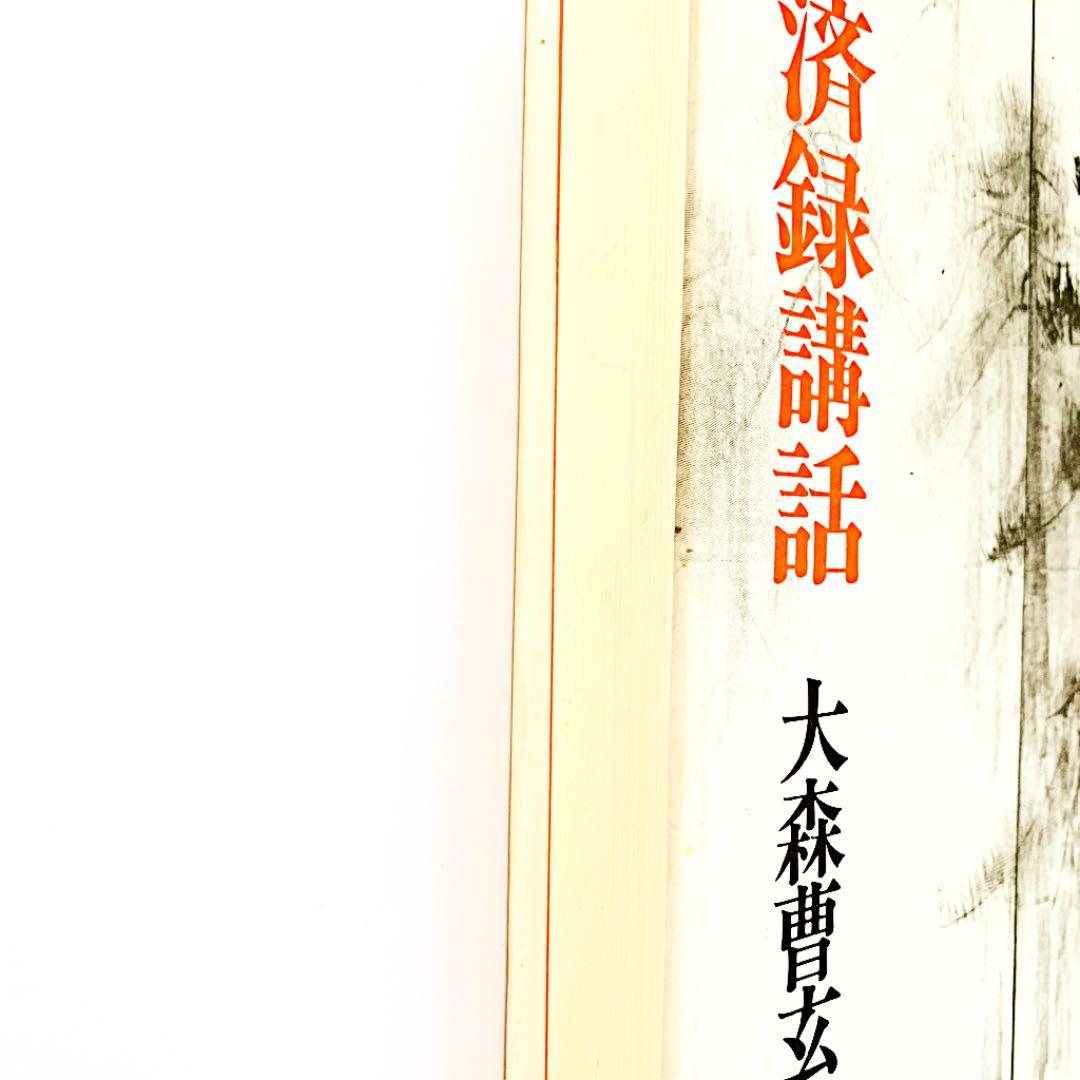 済録講話
大森曹玄